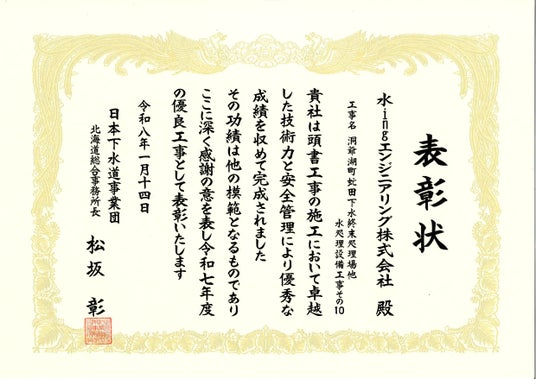 表彰状
水ingエンジニアリング株式会社 殿
工事名 洞爺湖町虻田下水終末処理場他
水処理設備工事その10
貴社は頭書工事の施工において卓越
した技術力と安全管理により優秀な
成績を収めて完成されました
その功績は他の模範となるものであり
ここに深く感謝の意を表し令和七年度
の優良工事として表彰いたします
令和八年一月十四日
日本下水道事業団
北海道総合事務所長 松坂 彰